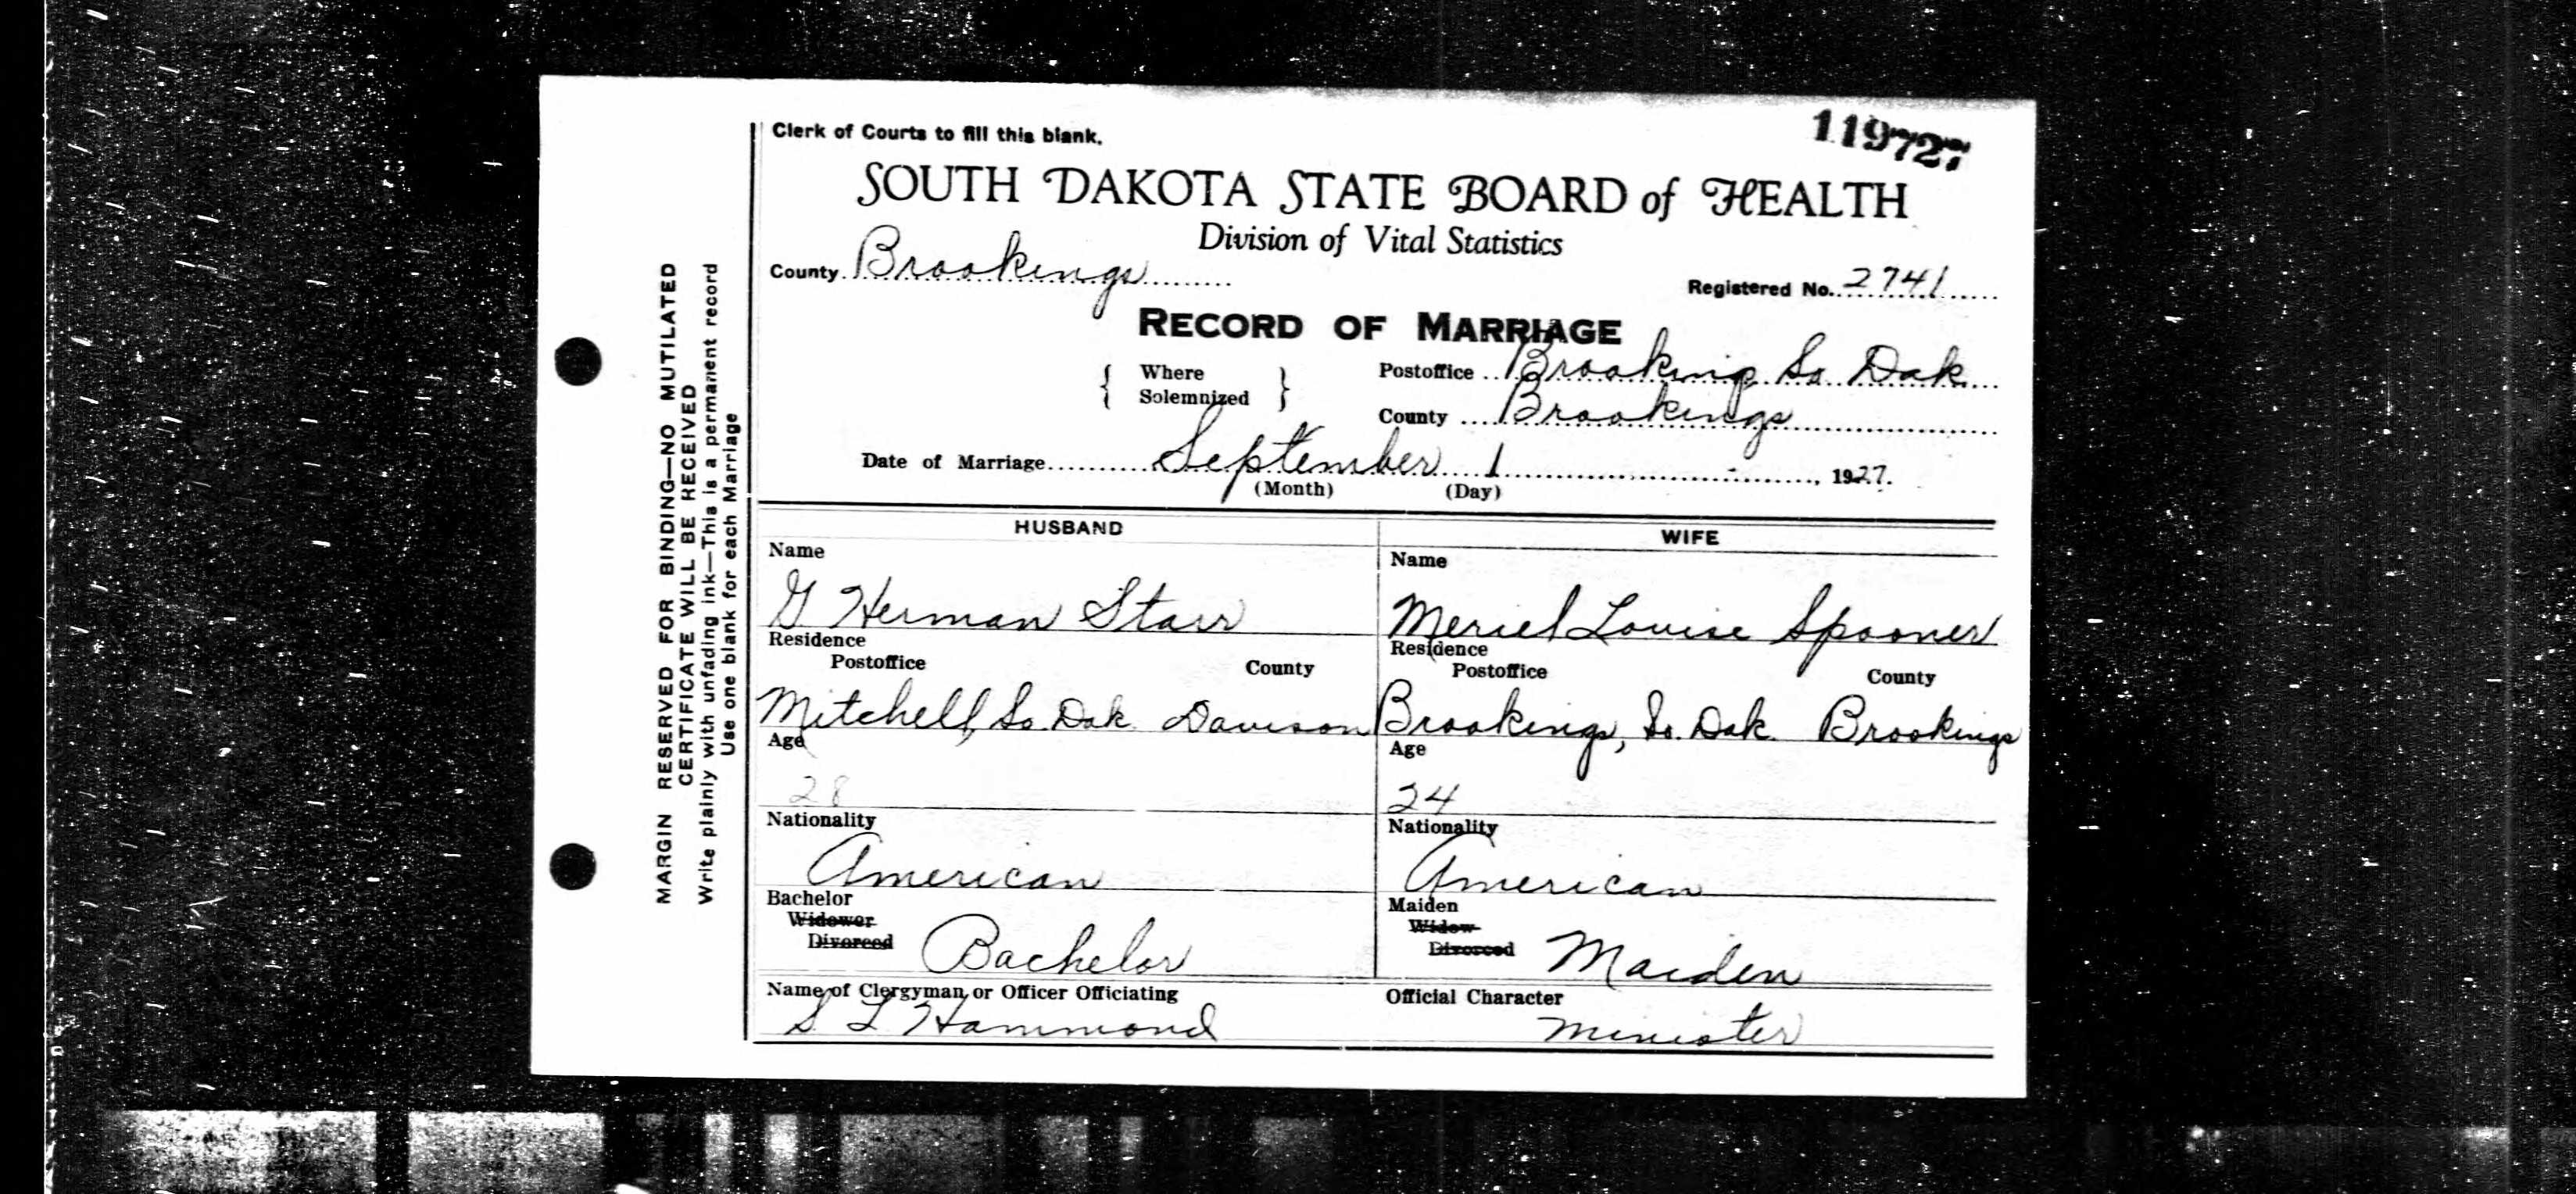 Clerk of Courts to fill this blank.
119727
SOUTH DAKOTA STATE BOARD of HEALTH
Division of Vital Statistics
County Brookings
Registered No. 2741
RECORD OF MARRIAGE
Where Solemnized
Postoffice Brooking So Dak
County Brookings
Date of Marriage September 1, 1927.
(Month) (Day)
HUSBAND
Name
G Herman Starr
Residence
Postoffice County
Mitchell, So. Dak. Davison
Age
28
Nationality
American
Bachelor
Widower
Divorced Bachelor
WIFE
Name
Meriel Louise Spooner
Residence
Postoffice County
Brookings, So. Dak. Brookings
Age
24
Nationality
American
Maiden
Widow
Divorced Maiden
Name of Clergyman or Officer Officiating
S L Hammond
Official Character
Minister
MARGIN RESERVED FOR BINDING—NO MUTILATED
CERTIFICATE WILL BE RECEIVED
Write plainly with unfading ink—This is a permanent record
Use one blank for each Marriage